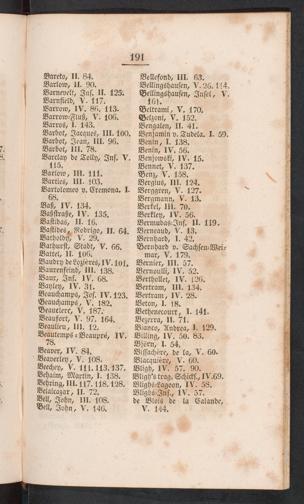 191
Bareto, II. 84.
Barlow, II. 90.
Barnevelt, Ins. II. 125.
Barnfield, V. 117.
Barrow, IV. 86. 113.
Barrow-Fluß, V. 106.
Barros, I. 143.
Barbot, Jacques, III. 100.
Barbot, Jean, III. 96.
Barbot, III. 78.
Barclay de Tolly, Ins. V.
115.
Barlow, III. 111.
Barties, III. 103.
Bartolomeo v. Cremona, I.
68.
Baß, IV. 134.
Baßstraße, IV. 135.
Bastidas, II. 16.
Bastides, Rodrigo, II. 64.
Bathurst, Stadt, V. 66.
Battel, II. 106.
Baudry de Lozières, IV. 101.
Baurenfeind, III. 138.
Baur, Ins. IV. 68.
Bayley, IV. 31.
Beauchamps, Jos. IV. 123.
Beauchamps, V. 182.
Beauclerc, V. 187.
Beaufort, V. 97. 164.
Beaulieu, III. 12.
Beautemps-Beaupré, IV.
78.
Beaver, IV. 84.
Beaverley, V. 108.
Beechey, V. 111. 113. 137.
Behaim, Martin, I. 138.
Behring, III. 117. 118. 128.
Belalcazar, II. 72.
Bell, John, III. 108.
Bell, John, V. 146.
Bellefond, III. 63.
Bellingshausen, V. 26. 114.
Bellingshausen, Insel, V.
161.
Beltrami, V. 170.
Belzoni, V. 152.
Bengalen, II. 41.
Benjamin v. Tudela, I. 59.
Benin, I. 138.
Benin, IV. 56.
Benjowski, IV. 15.
Bennet, V. 137.
Benz, V. 158.
Bergius, III. 124.
Berggren, V. 127.
Bergmann, V. 13.
Berkel, III. 70.
Berkley, IV. 56.
Bermudas-Ins. II. 119.
Berneaud, V. 13.
Bernhard, I. 42.
Bernhard v. Sachsen-Wei-
mar, V. 179.
Bernier, III. 57.
Bernoulli, IV. 52.
Berthollet, IV. 126.
Bertram, III. 134.
Bertram, IV. 28.
Beton, I. 18.
Bethencourt, I. 141.
Bezerra, II. 71.
Bianco, Andrea, I. 129.
Billing, IV. 50. 83.
Björn, I. 54.
Blacquière, V. 60.
Bligh, IV. 57. 90.
Bligh's-Lagoon, IV. 58.
Blighs-Ins., IV. 57.
de Blois de la Calande,
V. 144.